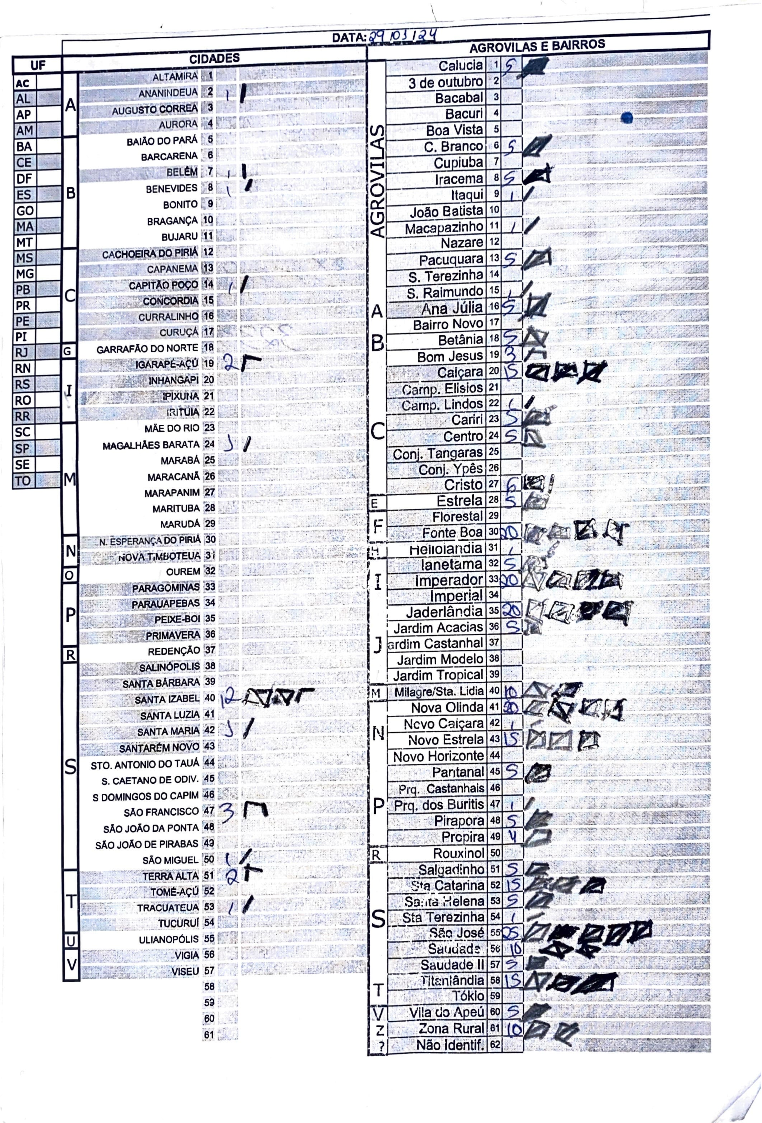 DATA: 29/03/24
UF CIDADES AGROVILAS E BAIRROS
AC
AL
AP
AM
BA
CE
DF
ES
GO
MA
MT
MS
MG
PB
PR
PE
PI
RJ
RN
RS
RO
RR
SC
SP
SE
TO
A
B
C
G
I
M
N
O
P
R
S
T
U
V
ALTAMIRA 1
ANANINDEUA 2 1
AUGUSTO CORREA 3
AURORA 4
BAIÃO DO PARÁ 5
BARCARENA 6
BELÉM 7 1
BENEVIDES 8 1
BONITO 9
BRAGANÇA 10
BUJARU 11
CACHOEIRA DO PIRIÁ 12
CAPANEMA 13
CAPITÃO POÇO 14 1
CONCORDIA 15
CURRALINHO 16
CURUÇA 17
GARRAFÃO DO NORTE 18
IGARAPÉ-AÇÚ 19 2
INHANGAPI 20
IPIXUNA 21
IRITUIA 22
MÃE DO RIO 23
MAGALHÃES BARATA 24 1
MARABÁ 25
MARACANÃ 26
MARAPANIM 27
MARITUBA 28
MARUDÁ 29
N. ESPERANÇA DO PIRIÁ 30
NOVA TIMBOTEUA 31
OUREM 32
PARAGOMINAS 33
PARAUAPEBAS 34
PEIXE-BOI 35
PRIMAVERA 36
REDENÇÃO 37
SALINÓPOLIS 38
SANTA BÁRBARA 39
SANTA IZABEL 40 12
SANTA LUZIA 41
SANTA MARIA 42 1
SANTARÉM NOVO 43
STO. ANTONIO DO TAUÁ 44
S. CAETANO DE ODIV. 45
S DOMINGOS DO CAPIM 46
SÃO FRANCISCO 47 3
SÃO JOÃO DA PONTA 48
SÃO JOÃO DE PIRABAS 49
SÃO MIGUEL 50 1
TERRA ALTA 51 2
TOMÉ-AÇÚ 52
TRACUATEUA 53 1
TUCURUÍ 54
ULIANÓPOLIS 55
VIGIA 56
VISEU 57
58
59
60
61
AGROVILAS
A
B
C
E
F
H
I
J
M
N
P
R
S
T
V
Z
?
Calucia 1 5
3 de outubro 2
Bacabal 3
Bacuri 4
Boa Vista 5
C. Branco 6 5
Cupiuba 7
Iracema 8 5
Itaqui 9 1
João Batista 10
Macapazinho 11 1
Nazare 12
Pacuquara 13 5
S. Terezinha 14
S. Raimundo 15 1
Ana Júlia 16 5
Bairro Novo 17
Betânia 18 5
Bom Jesus 19 3
Caiçara 20 15
Camp. Elisios 21
Camp. Lindos 22 1
Cariri 23 5
Centro 24 5
Conj. Tangaras 25
Conj. Ypês 26
Cristo 27 6
Estrela 28 5
Florestal 29
Fonte Boa 30 20
Heliolandia 31 1
Ianetama 32 5
Imperador 33 20
Imperial 34
Jaderlândia 35 20
Jardim Acacias 36 5
Jardim Castanhal 37
Jardim Modelo 38
Jardim Tropical 39
Milagre/Sta. Lidia 40 10
Nova Olinda 41 20
Novo Caiçara 42 1
Novo Estrela 43 15
Novo Horizonte 44
Pantanal 45 5
Prq. Castanhais 46
Prq. dos Buritis 47 1
Pirapora 48 5
Propira 49 4
Rouxinol 50
Salgadinho 51 5
Sta Catarina 52 15
Santa Helena 53 5
Sta Terezinha 54 1
São José 55 25
Saudade 56 10
Saudade II 57 5
Titanlândia 58 15
Tókio 59
Vila do Apeú 60 5
Zona Rural 61 10
Não Identif. 62